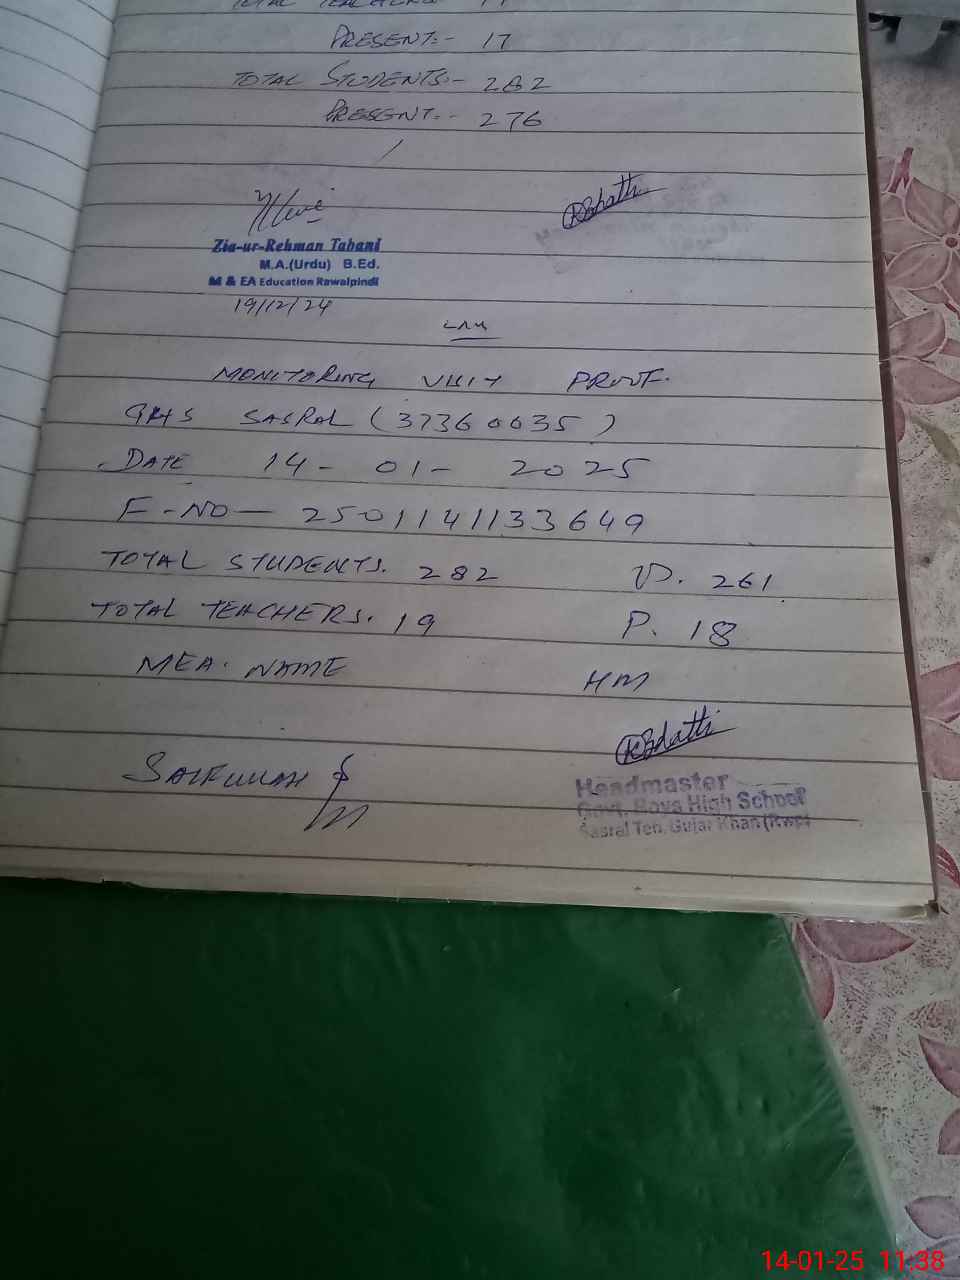 PRESENT:- 17
TOTAL STUDENTS:- 282
PRESENT:- 276
Zia-ur-Rehman Tabani
M.A.(Urdu) B.Ed.
M & EA Education Rawalpindi
19/12/24
MONITORING VISIT PROOF.
GHS SASRAL (37360035)
DATE 14-01-2025
F-NO- 2501141133649
TOTAL STUDENTS. 282 P. 261
TOTAL TEACHERS. 19 P. 18
MEA. NAME HM
SAIFULLAH
Headmaster
Govt. Boys High School
Sasral Teh. Gujar Khan (Rwp)
14-01-25 11:38